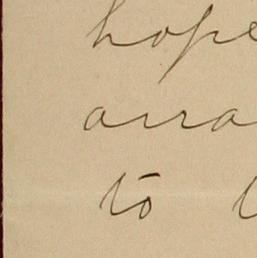 hope
arra
to